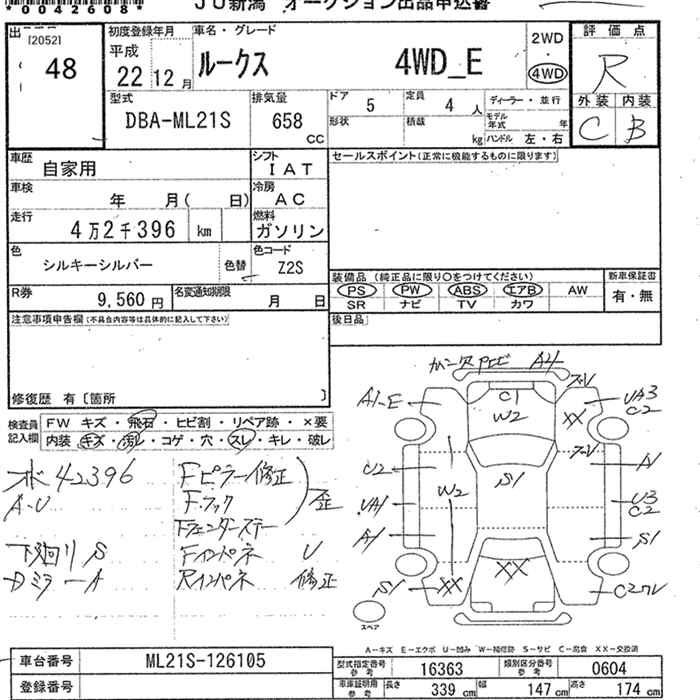 *0042608*
JU新潟 オークション出品申込書
出
[2052]
48
初度登録年月
平成
22 12 月
車名・グレード
ルークス 4WD_E
2WD
4WD
評価点
R
外装 内装
C B
型式
DBA-ML21S
排気量
658 CC
ドア 5
定員 4 人
形状
積載 kg
ディーラー・並行
モデル年式 年
ハンドル 左・右
車歴
自家用
シフト
IAT
セールスポイント(正常に機能するものに限ります)
車検
年 月( 日)
冷房
AC
走行
4万2千396 km
燃料
ガソリン
色
シルキーシルバー
色替
色コード
Z2S
R券
9,560 円
名変通知期限
月 日
装備品 (純正品に限り○をつけてください)
PS PW ABS エアB AW
SR ナビ TV カワ
新車保証書
有・無
注意事項申告欄(不具合内容等は具体的に記入して下さい)
後日品
修復歴 有〔箇所 〕
検査員記入欄
FW キズ・飛石・ヒビ割・リペア跡・×要
内装 キズ・汚レ・コゲ・穴・スレ・キレ・破レ
42396
A-U
下廻り S
Dミラー A
Fピラー修正
Fフック
歪
Fフェンダーステー
Fインパネ U
Rインパネ 修正
A1-E
C1
W2
XX
UA3
C2
U2
W2
S1
A1
UA1
U3
C2
A1
S1
S1
XX
XX
スペア
A-キズ E-エクボ U-凹み W-補修跡 S-サビ C-腐食 XX-交換済
車台番号
ML21S-126105
登録番号
型式指定番号 参考
16363
類別区分番号 参考
0604
車庫証明用 参考
長さ 339 cm
幅 147 cm
高さ 174 cm